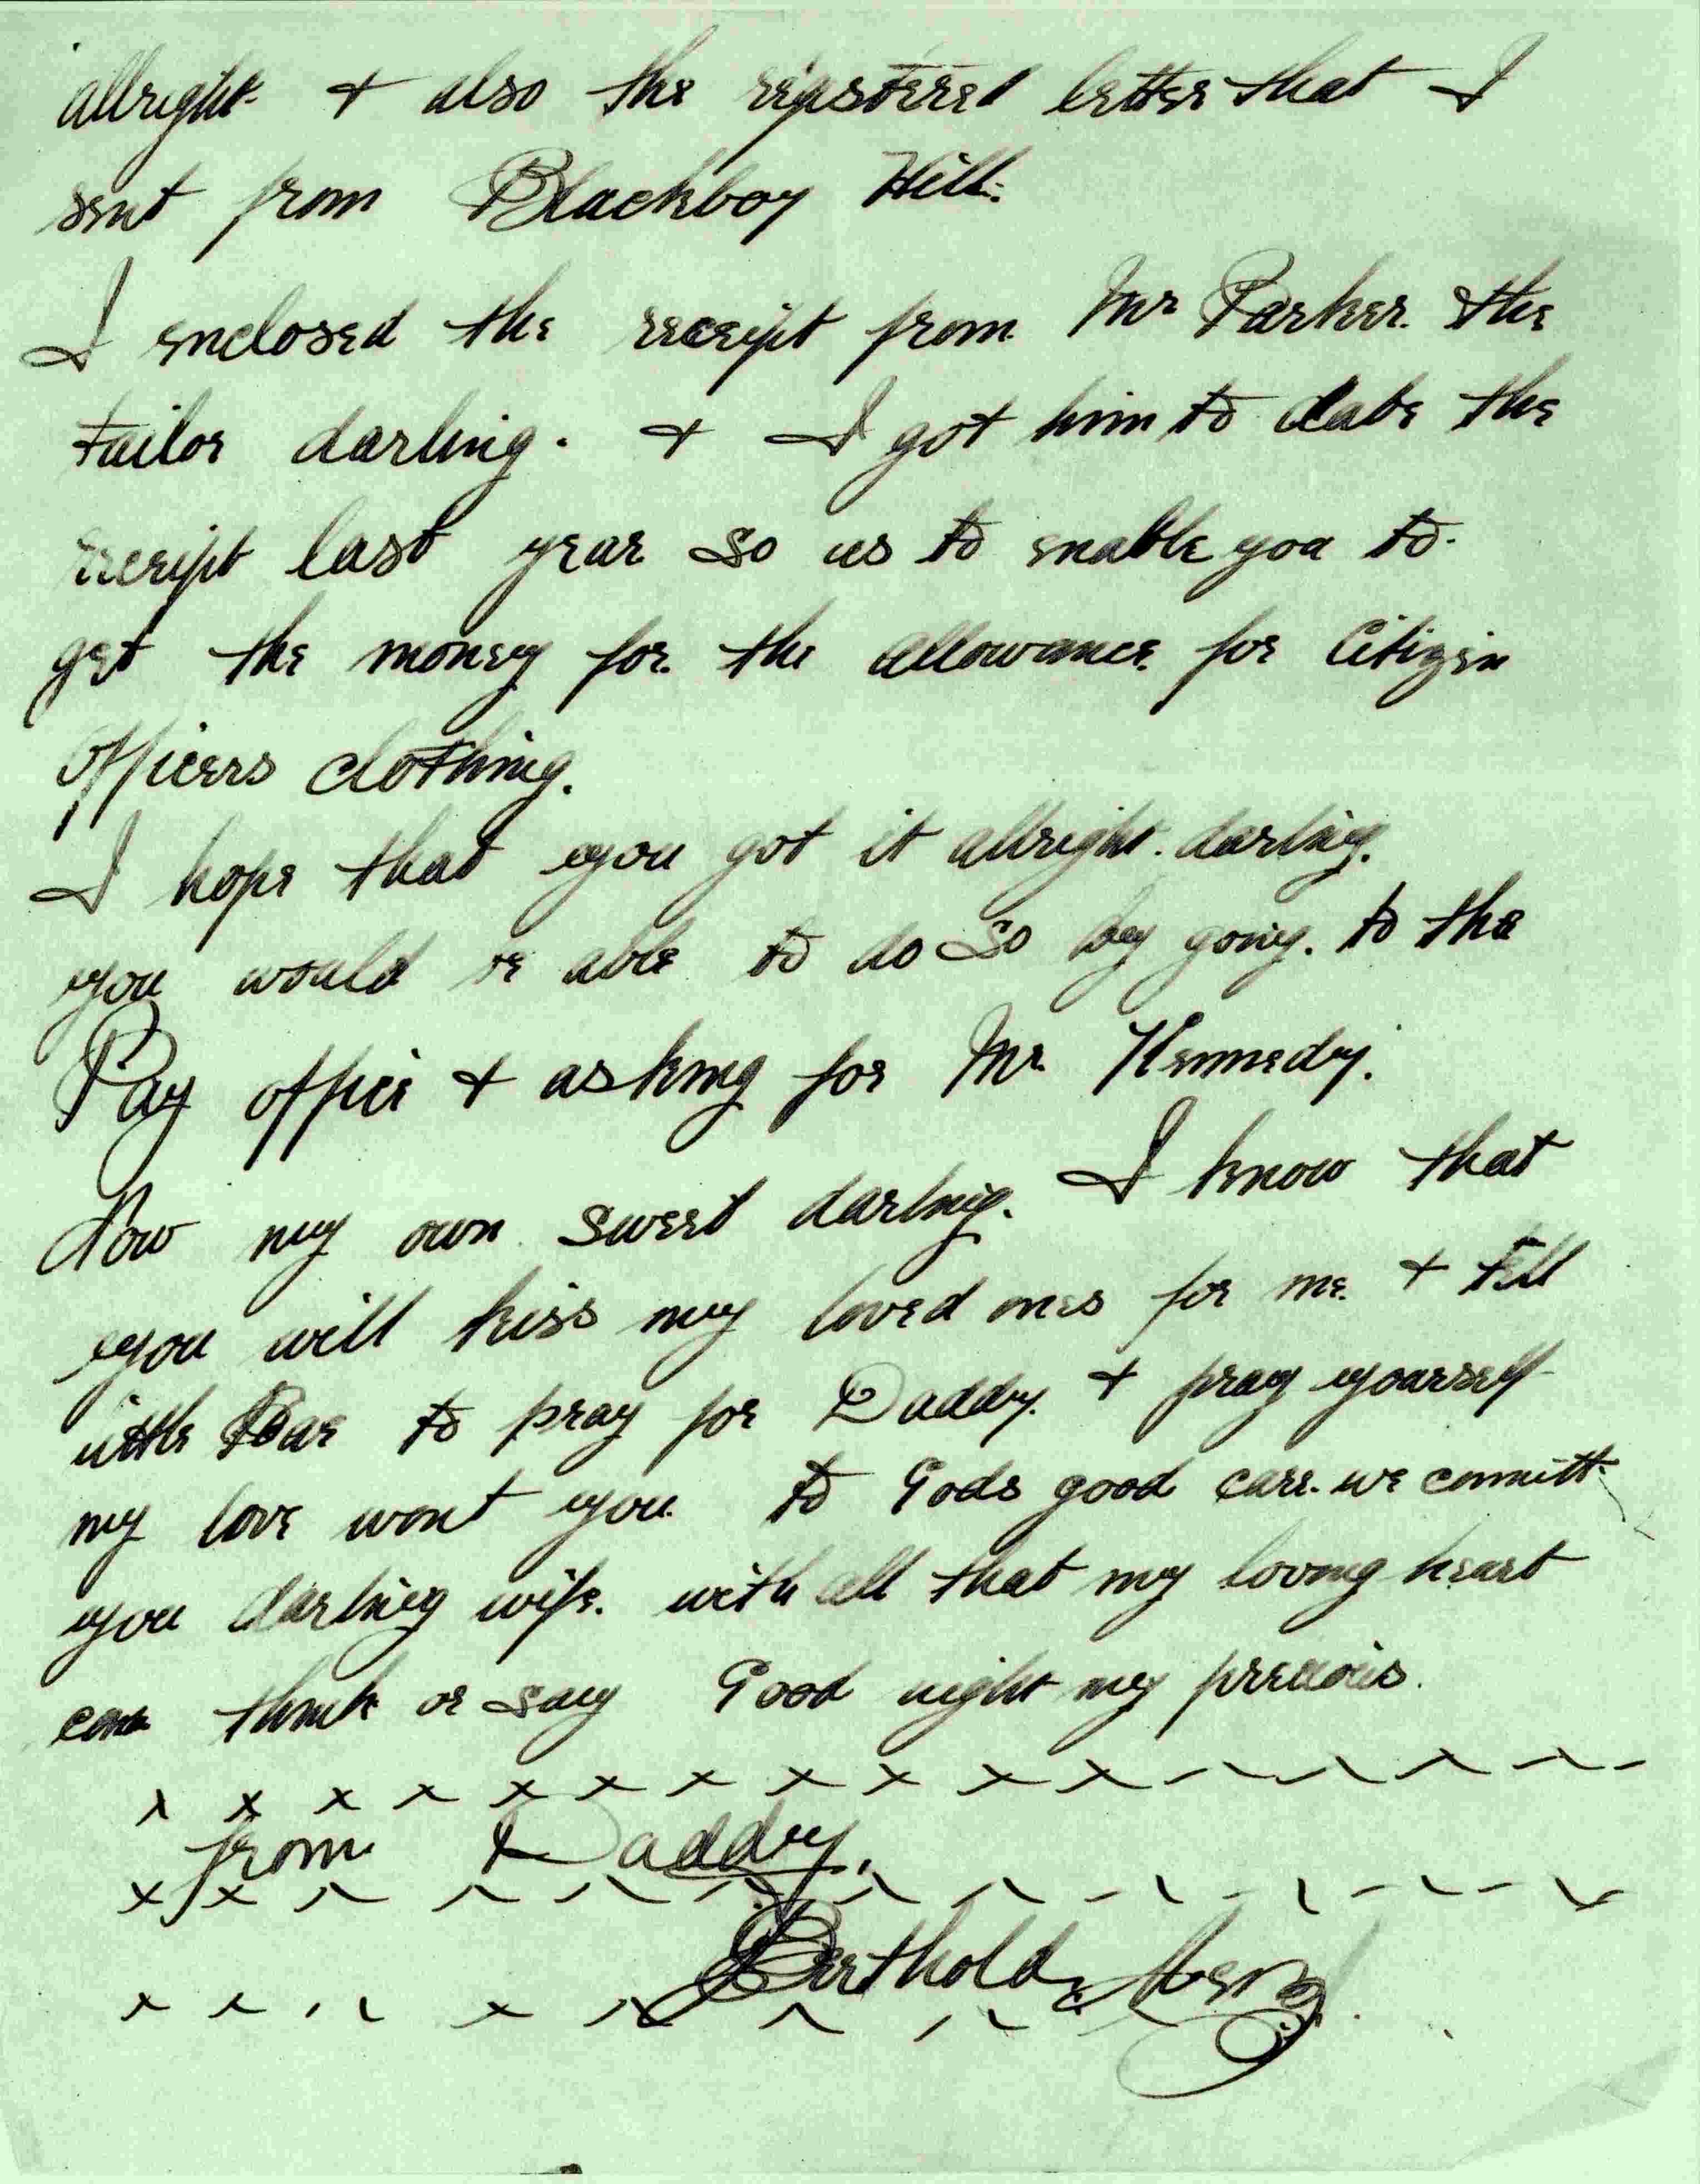 allright & also the registered letter that I
sent from Blackboy Hill.
I enclosed the receipt from Mr Parker. the
tailor darling. & I got him to date the
receipt last year so as to enable you to
get the money for the allowance for Citizen
Officers clothing.
I hope that you got it allright. darling.
you would be able to do so by going. to the
Pay office & asking for Mr. Kennedy.
Now my own sweet darling. I know that
you will kiss my loved ones for me & tell
little to pray for Daddy. & pray yourself
my love wont you. to Gods good care. we committ
you darling wife. with all that my loving heart
can think or say Good night my precious.
x x x x x x x x x x x x x x x
from Daddy.
x x x x x x x x x x x x x
Berthold
x x x x x x x x